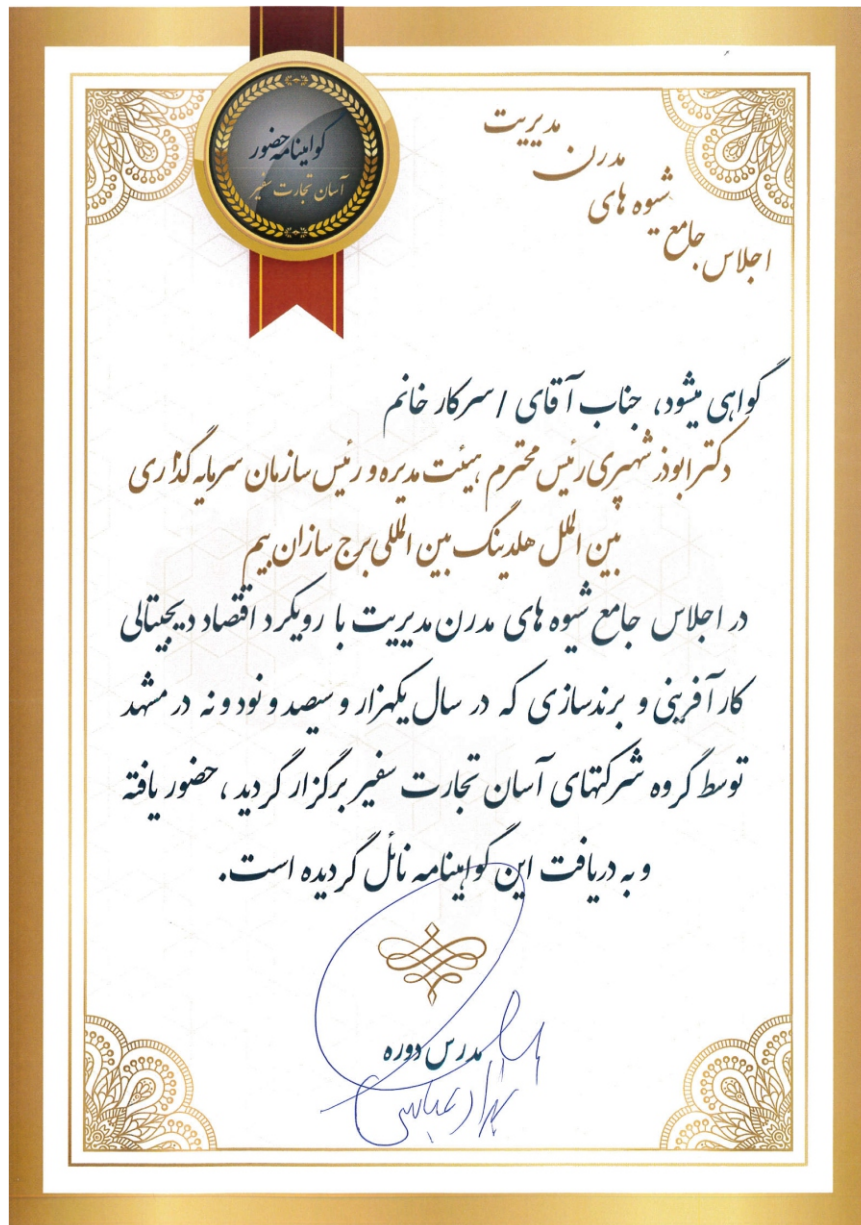 گواهینامه حضور
آسان تجارت سفیر
اجلاس جامع شیوه های مدرن مدیریت
گواهی میشود، جناب آقای / سرکار خانم
دکتر ابوذر شهپری رئیس محترم هیئت مدیره و رئیس سازمان سرمایه گذاری
بین الملل هلدینگ بین المللی برج سازان بیم
در اجلاس جامع شیوه های مدرن مدیریت با رویکرد اقتصاد دیجیتالی
کارآفرینی و برندسازی که در سال یکهزار و سیصد و نود و نه در مشهد
توسط گروه شرکتهای آسان تجارت سفیر برگزار گردید ، حضور یافته
و به دریافت این گواهینامه نائل گردیده است.
مدرس دوره